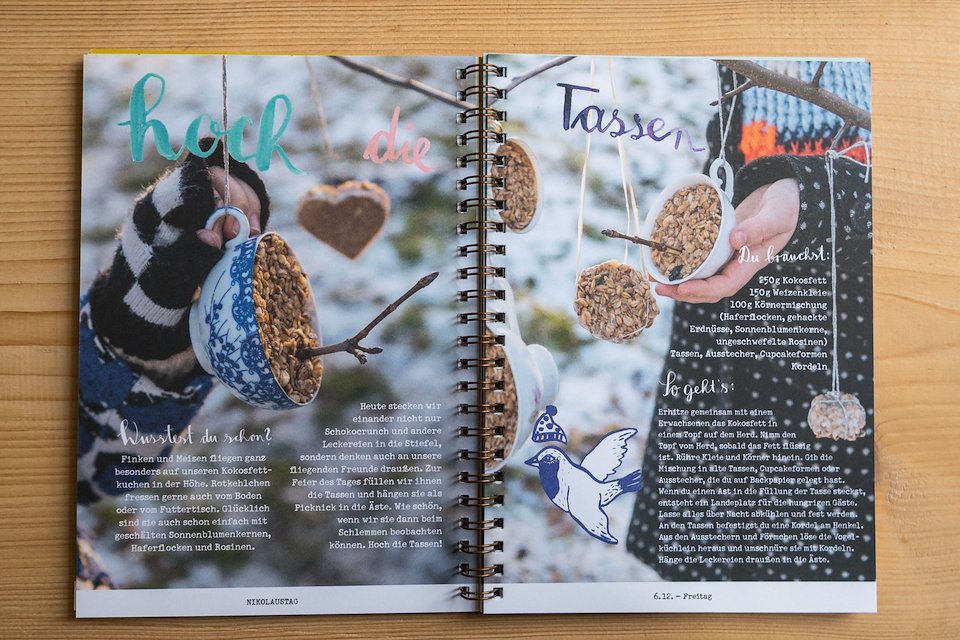 hoch die Tassen
Wusstest du schon?
Finken und Meisen fliegen ganz
besonders auf unseren Kokosfett-
kuchen in der Höhe. Rotkehlchen
fressen gerne auch vom Boden
oder vom Futtertisch. Glücklich
sind sie auch schon einfach mit
geschälten Sonnenblumenkernen,
Haferflocken und Rosinen.
Heute stecken wir
einander nicht nur
Schokocrunch und andere
Leckereien in die Stiefel,
sondern denken auch an unsere
fliegenden Freunde draußen. Zur
Feier des Tages füllen wir ihnen
die Tassen und hängen sie als
Picknick in die Äste. Wie schön,
wenn wir sie dann beim
Schlemmen beobachten
können. Hoch die Tassen!
NIKOLAUSTAG
Du brauchst:
250g Kokosfett
150g Weizenkleie
100g Körnermischung
(Haferflocken, gehackte
Erdnüsse, Sonnenblumenkerne,
ungeschwefelte Rosinen)
Tassen, Ausstecher, Cupcakeformen
Kordeln
So geht's:
Erhitze gemeinsam mit einem
Erwachsenen das Kokosfett in
einem Topf auf dem Herd. Nimm den
Topf vom Herd, sobald das Fett flüssig
ist. Rühre Kleie und Körner hinein. Gib die
Mischung in alte Tassen, Cupcakeformen oder
Ausstecher, die du auf Backpapier gelegt hast.
Wenn du einen Ast in die Füllung der Tasse steckst,
entsteht ein Landeplatz für die hungrigen Gäste.
Lasse alles über Nacht abkühlen und fest werden.
An den Tassen befestigst du eine Kordel am Henkel.
Aus den Ausstechern und Förmchen löse die Vogel-
küchlein heraus und umschnüre sie mit Kordeln.
Hänge die Leckereien draußen in die Äste.
6.12. – Freitag